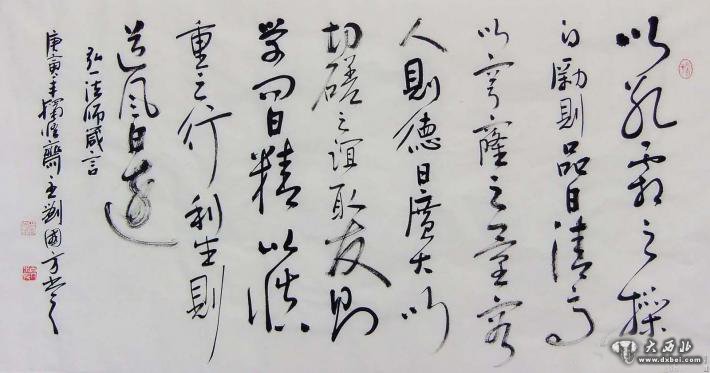 以冰霜之操
自勵則品日清高
以穹窿之量容
人則德日廣大以
切磋之誼取友則
學問日精以慎
重之行利生則
道風日遠
弘一法師箴言
庚寅年齋主劉國方書
大西北
www.dxbei.com